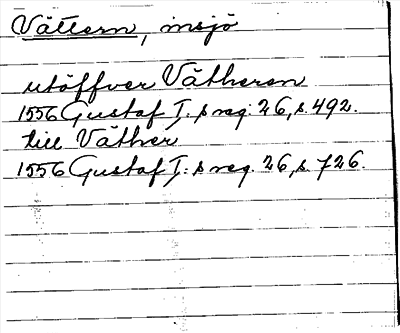 Vättern, insjö
utöffver Vätheren
1556 Gustaf I:s reg. 26, s. 492.
till Väther
1556 Gustaf I:s reg. 26, s. 726.